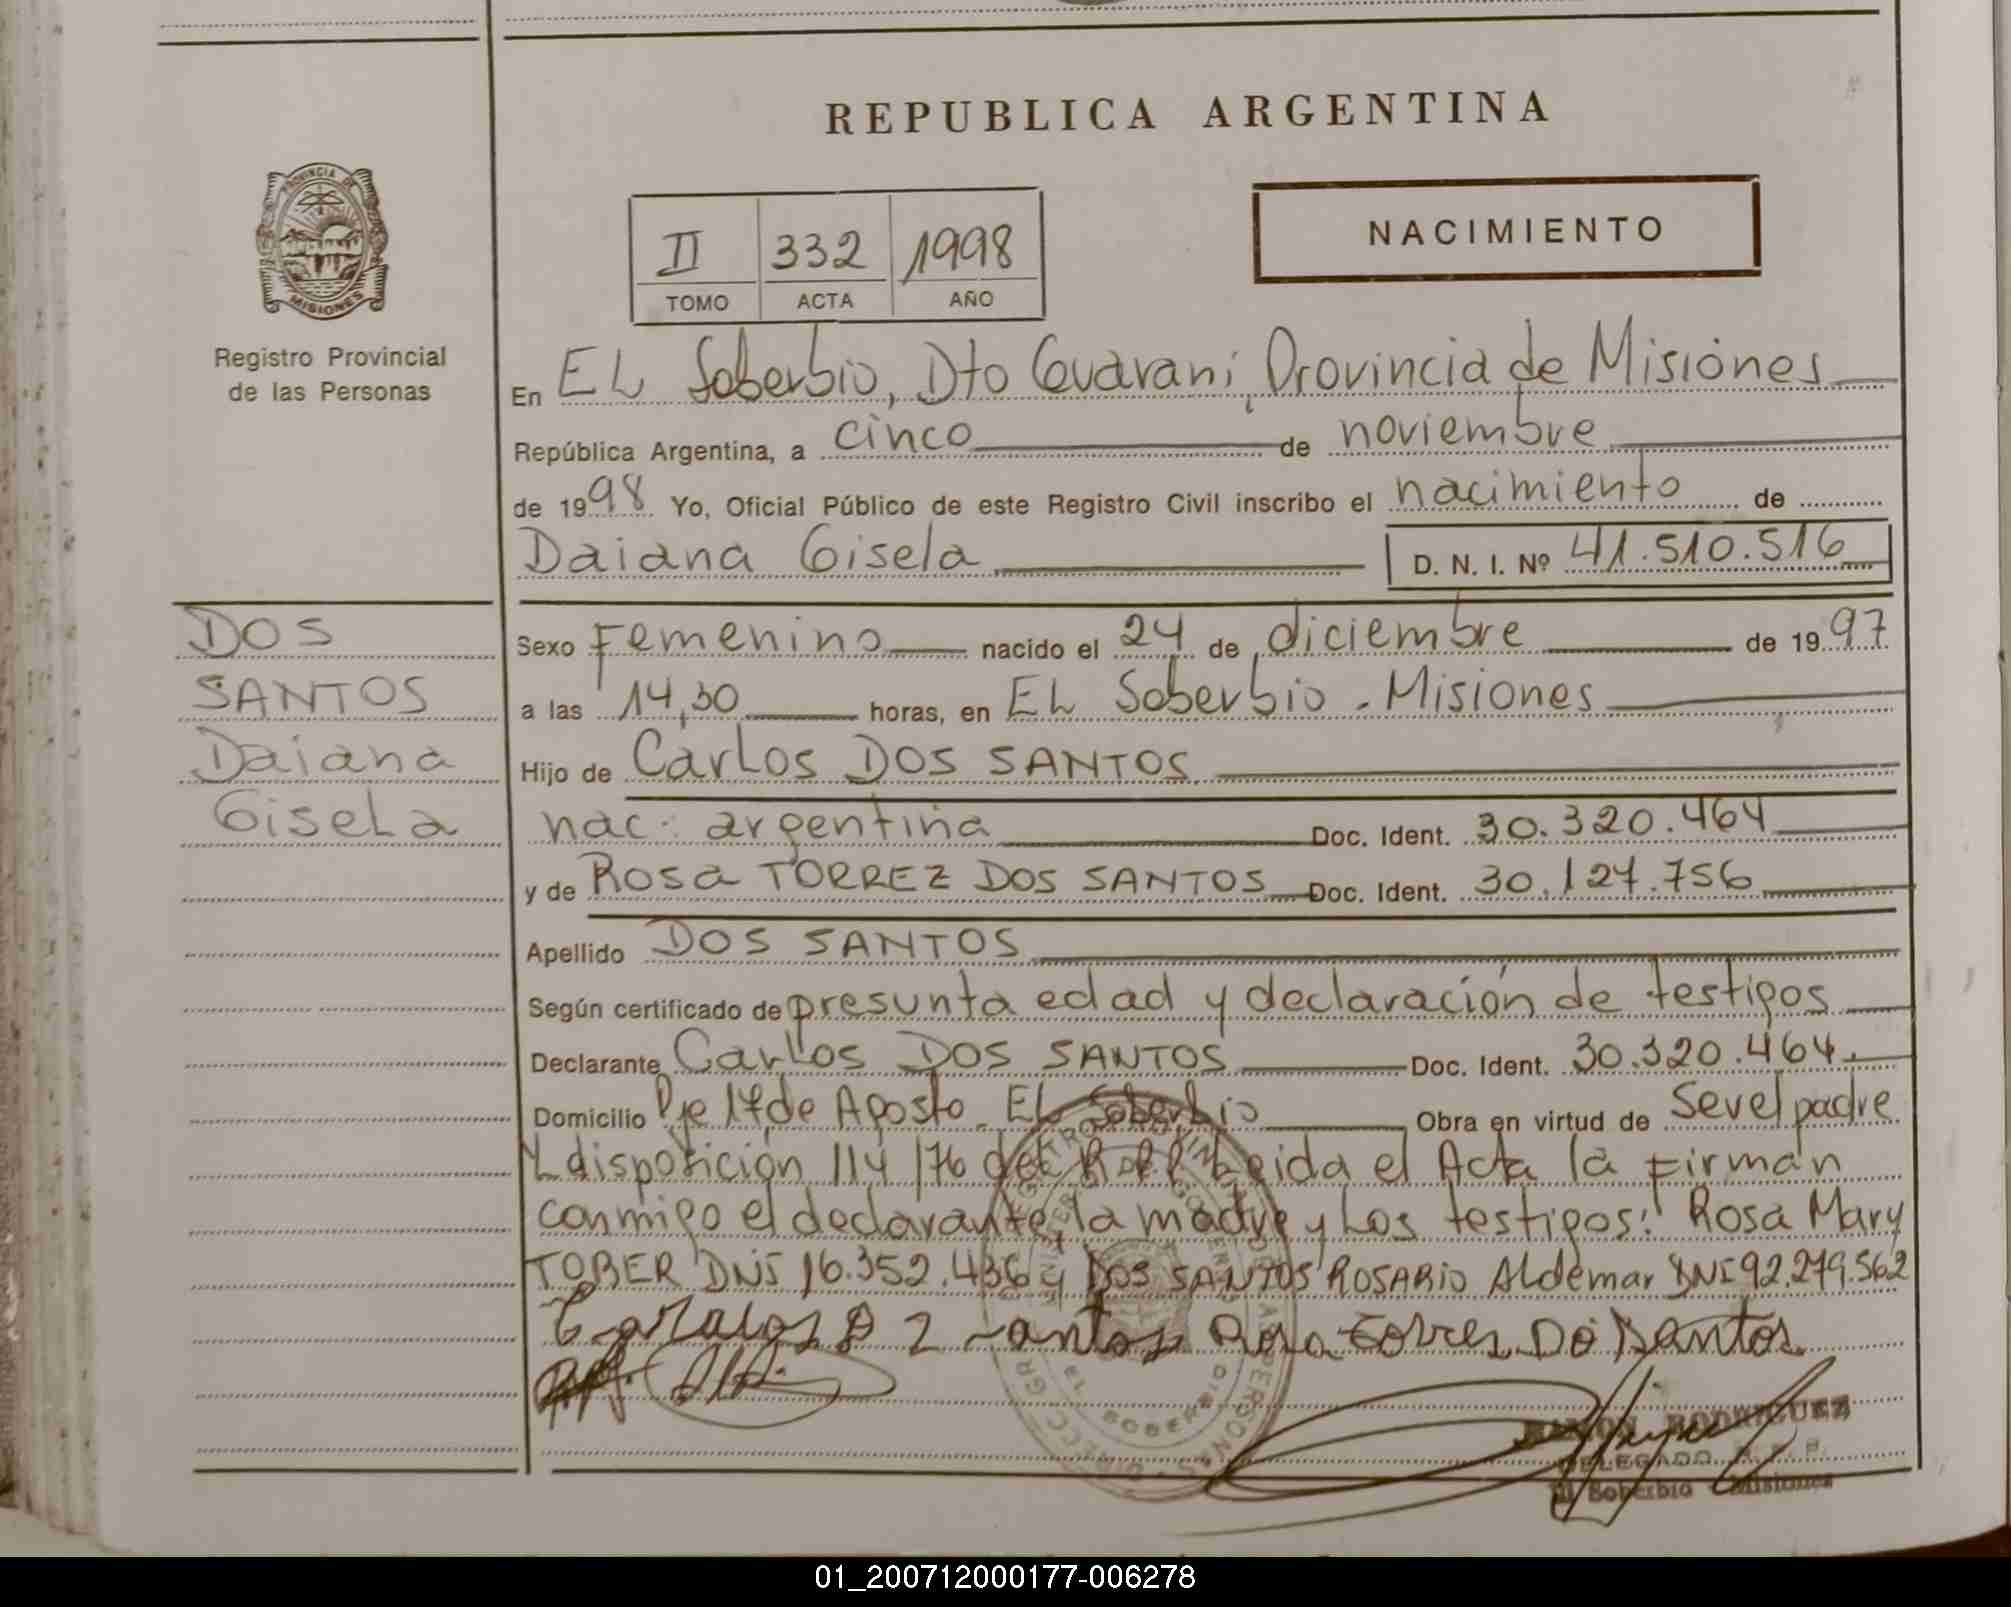 REPUBLICA ARGENTINA
PROVINCIA DE
MISIONES
Registro Provincial
de las Personas
II 332 1998
TOMO ACTA AÑO
NACIMIENTO
En EL Soberbio, Dto Guarani, Provincia de Misiones
República Argentina, a cinco de noviembre
de 1998 Yo, Oficial Público de este Registro Civil inscribo el nacimiento de
Daiana Gisela D. N. I. Nº 41.510.516
DOS
SANTOS
Daiana
GiseLa
Sexo Femenino nacido el 24 de diciembre de 1997
a las 14,30 horas, en EL Soberbio - Misiones
Hijo de CarLos DOS SANTOS
nac: argentina Doc. Ident. 30.320.464
y de Rosa TORREZ DOS SANTOS Doc. Ident. 30.127.756
Apellido DOS SANTOS
Según certificado de presunta edad y declaración de testigos
Declarante CarLos DOS SANTOS Doc. Ident. 30.320.464.
Domicilio Pje 17 de Agosto - EL Soberbio Obra en virtud de Ser el padre
Y disposición 114/76 del Leida el Acta la Firman
conmigo el declarante, la madre y Los testigos: Rosa Mary
TOBER DNI 16.352.436 y DOS SANTOS ROSARIO Aldemar DNI 92.279.562
Rosa Torres Do Santos
RAMON RODRIGUEZ
DELEGADO R. P. P.
El Soberbio Misiones
01_200712000177-006278